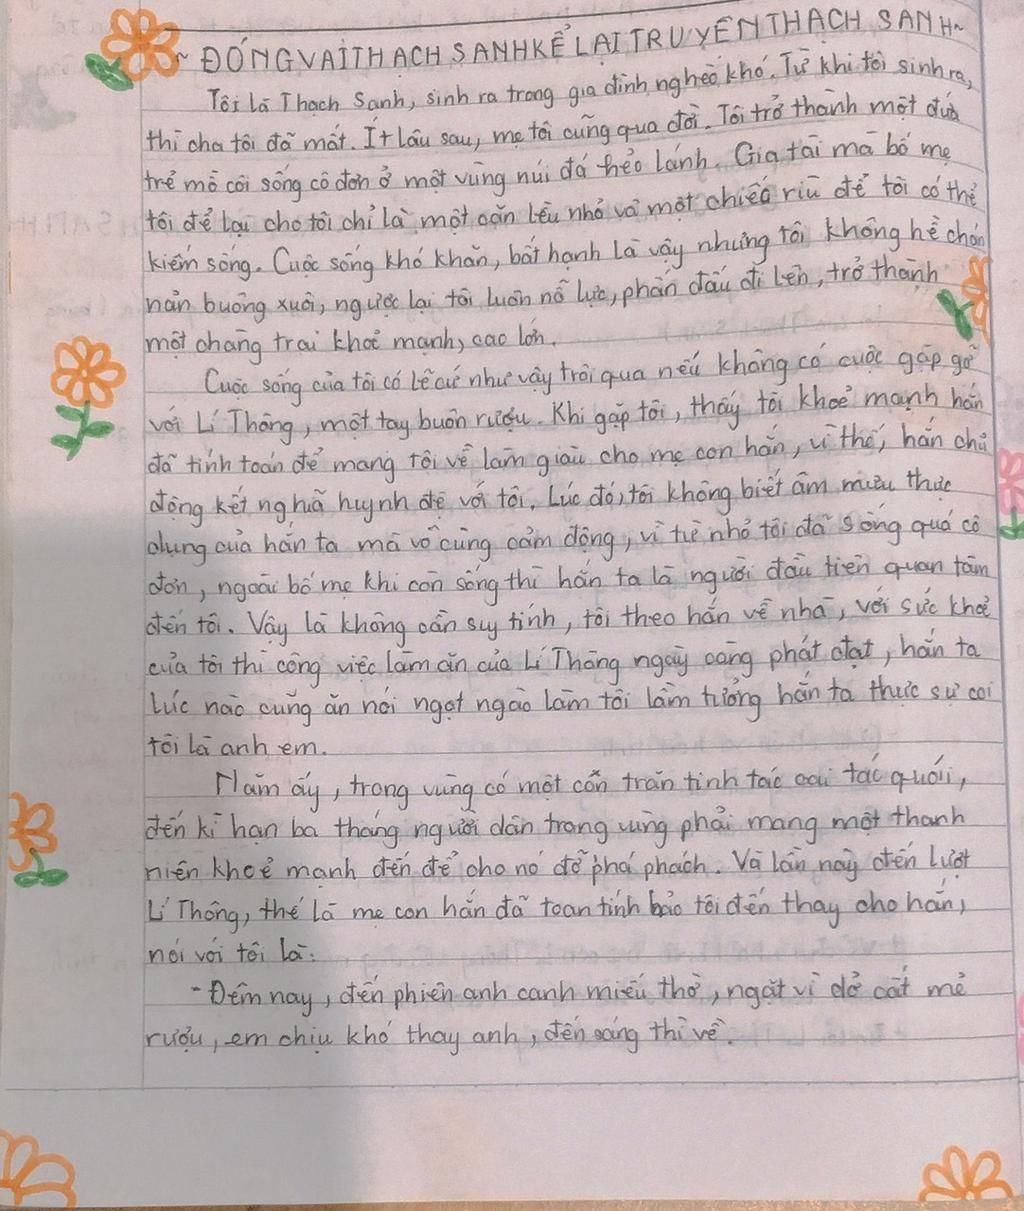 ~ ĐÓNG VAI THẠCH SANH KỂ LẠI TRUYỆN THẠCH SANH ~
Tôi là Thạch Sanh, sinh ra trong gia đình nghèo khó. Từ khi tôi sinh ra,
thì cha tôi đã mất. Ít lâu sau, mẹ tôi cũng qua đời. Tôi trở thành một đứa
trẻ mồ côi sống cô đơn ở một vùng núi đá hẻo lánh. Gia tài mà bố mẹ
tôi để lại cho tôi chỉ là một căn lều nhỏ và một chiếc rìu để tôi có thể
kiếm sống. Cuộc sống khó khăn, bất hạnh là vậy nhưng tôi không hề chán
nản buông xuôi, ngược lại tôi luôn nỗ lực, phấn đấu đi lên, trở thành
một chàng trai khoẻ mạnh, cao lớn.
Cuộc sống của tôi có lẽ cứ như vậy trôi qua nếu không có cuộc gặp gỡ
với Lí Thông, một tay buôn rượu. Khi gặp tôi, thấy tôi khoẻ mạnh hắn
đã tính toán để mang tôi về làm giàu cho mẹ con hắn, vì thế, hắn chủ
động kết nghĩa huynh đệ với tôi. Lúc đó, tôi không biết âm mưu thực
dụng của hắn ta mà vô cùng cảm động, vì từ nhỏ tôi đã sống quá cô
đơn, ngoài bố mẹ khi còn sống thì hắn ta là người đầu tiên quan tâm
đến tôi. Vậy là không cần suy tính, tôi theo hắn về nhà, với sức khoẻ
của tôi thì công việc làm ăn của Lí Thông ngày càng phát đạt, hắn ta
lúc nào cũng ăn nói ngọt ngào làm tôi lầm tưởng hắn ta thực sự coi
tôi là anh em.
Năm ấy, trong vùng có một côn trăn tinh tác oai tác quái,
đến kì hạn ba tháng người dân trong vùng phải mang một thanh
niên khoẻ mạnh đến để cho nó đỡ phá phách. Và lần này đến lượt
Lí Thông, thế là mẹ con hắn đã toan tính bảo tôi đến thay cho hắn,
nói với tôi là:
- Đêm nay, đến phiên anh canh miếu thờ, ngặt vì dở cất mẻ
rượu, em chịu khó thay anh, đến sáng thì về.